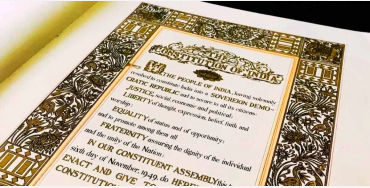 CONSTITUTION OF INDIA
WE, THE PEOPLE OF INDIA, having solemnly
resolved to constitute India into a SOVEREIGN DEMO-
CRATIC REPUBLIC and to secure to all its citizens:
JUSTICE, social, economic and political;
LIBERTY of thought, expression, belief, faith and
worship;
EQUALITY of status and of opportunity;
and to promote among them all
FRATERNITY assuring the dignity of the individual
and the unity of the Nation;
IN OUR CONSTITUENT ASSEMBLY this
sixth day of November, 1949, do HEREBY
ENACT AND GIVE TO
CONSTITUTION